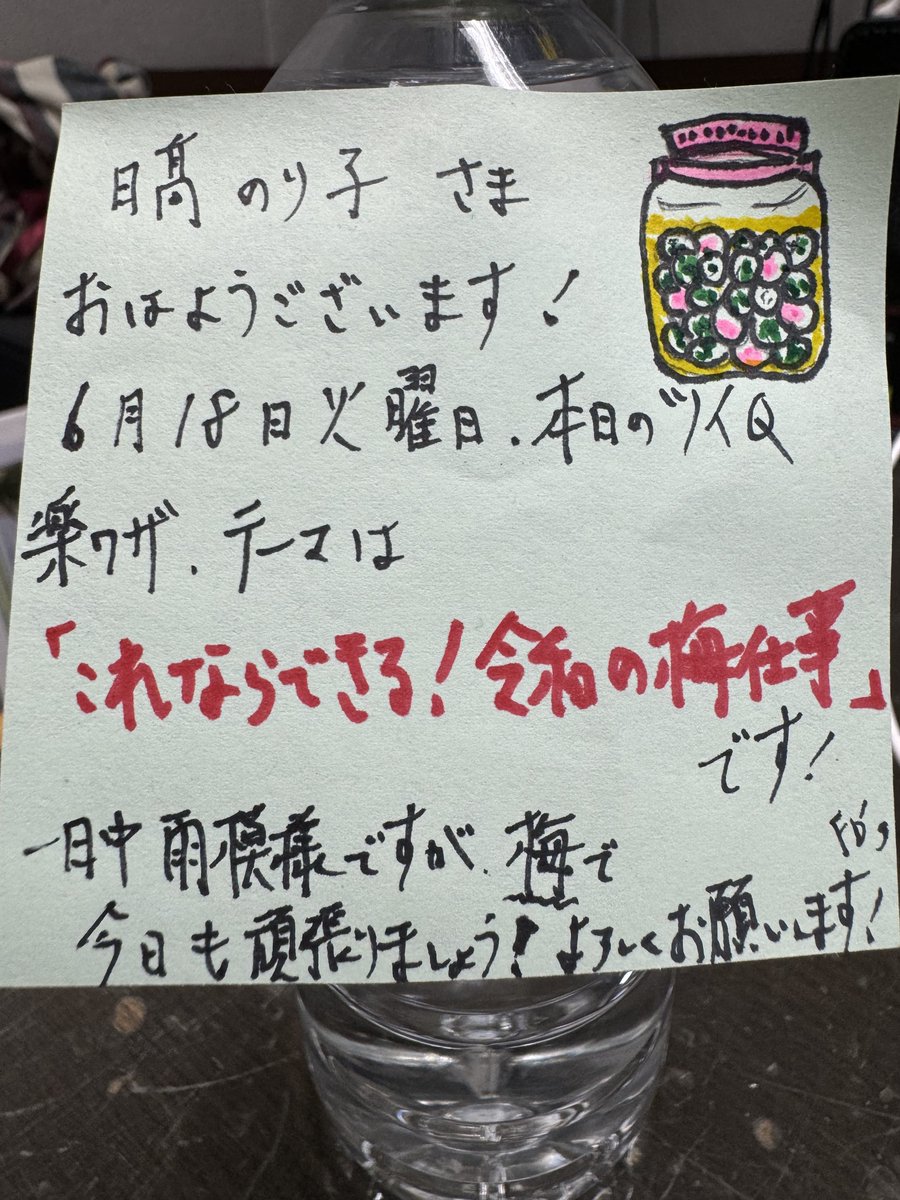 日髙 のり子 さま
おはようございます！
6月18日火曜日、本日のツイQ
楽ワザ、テーマは
「これならできる！令和の梅仕事」
です！
一日中 雨模様ですが、梅で
FD's
今日も頑張りましょう！よろしくお願いします！